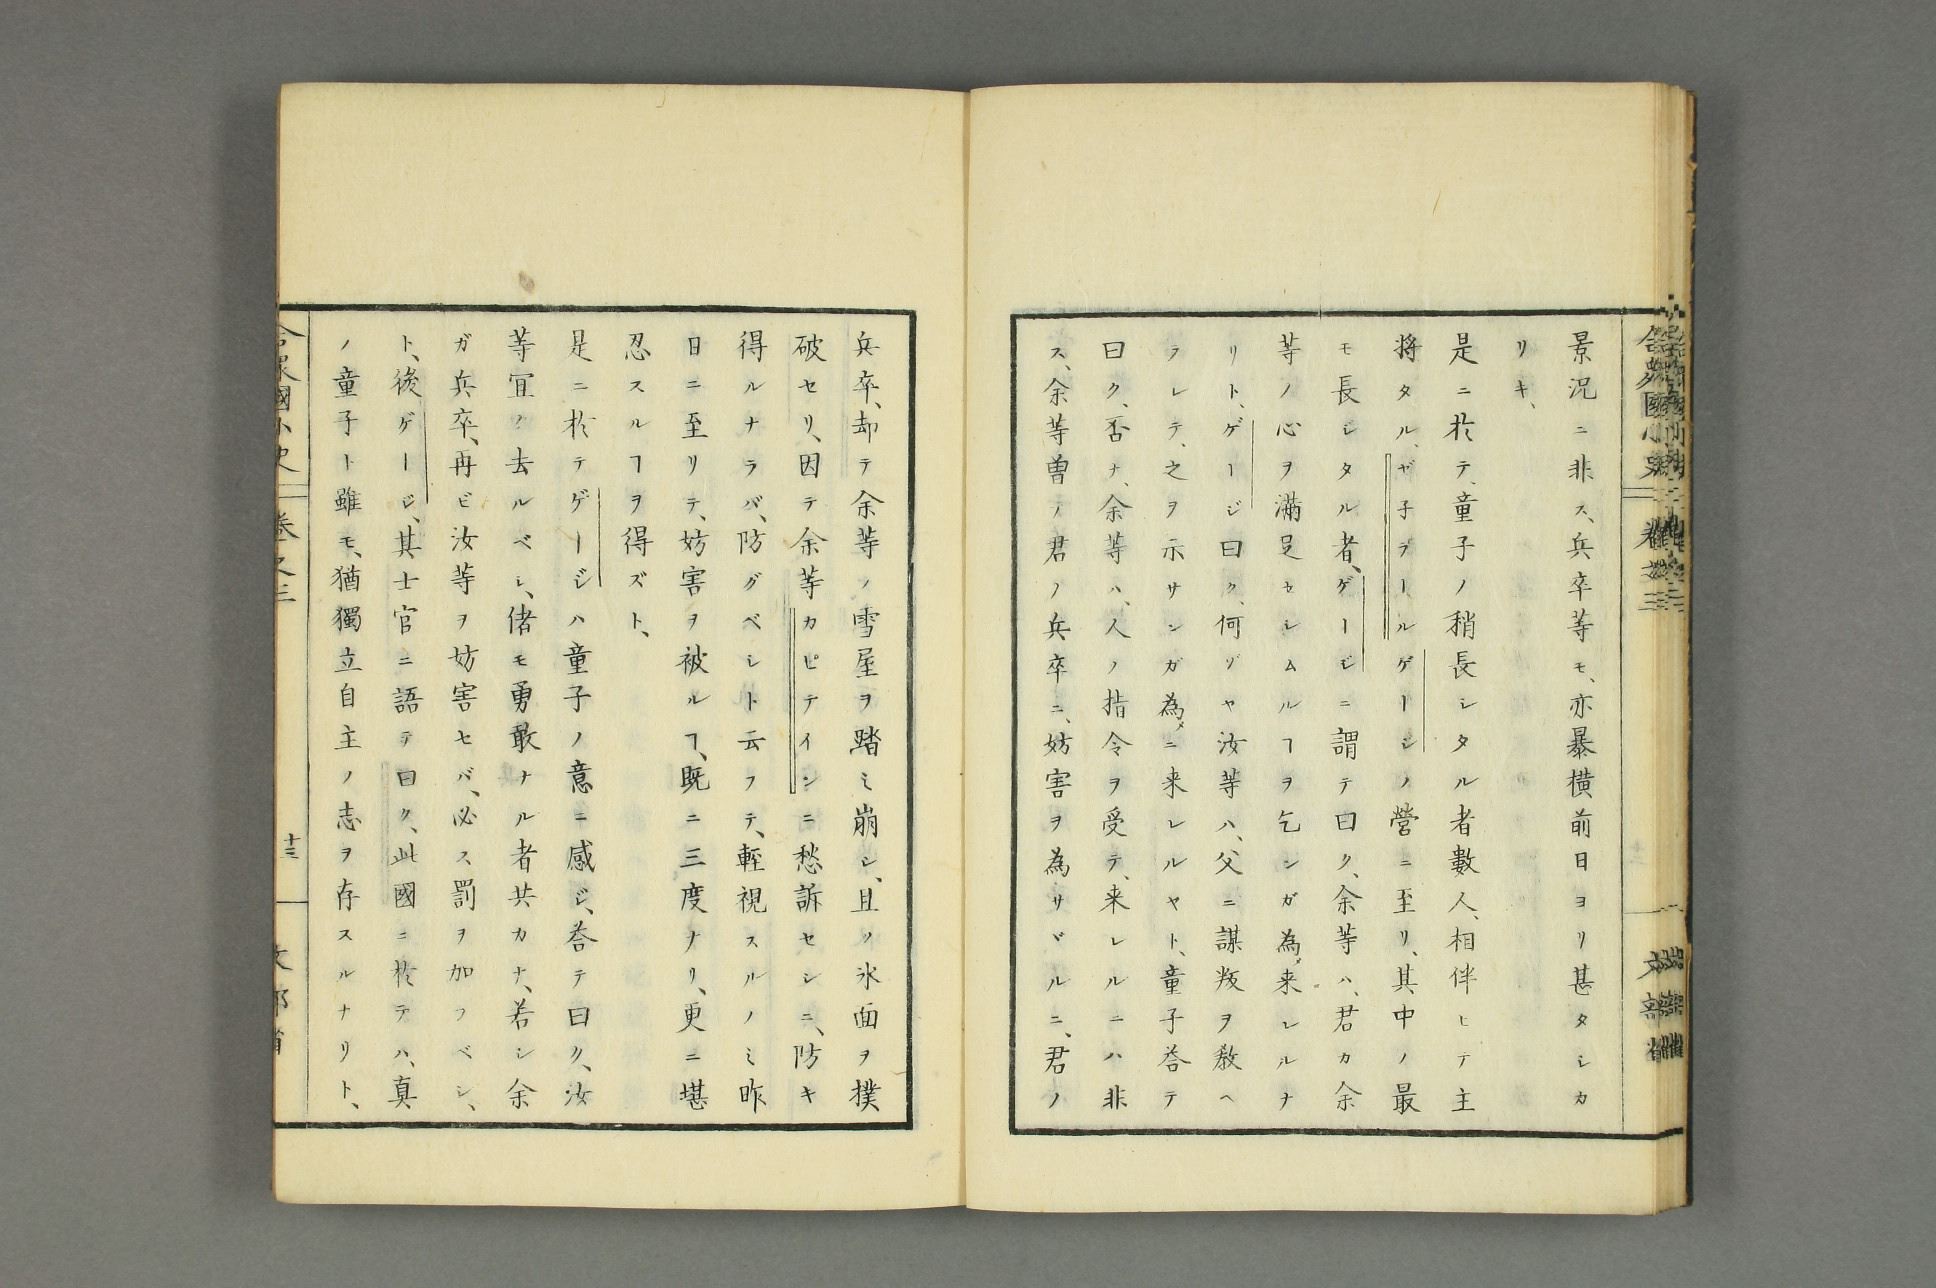 景況ニ非ス、兵卒等モ、亦暴横前日ヨリ甚タシカ
リキ、
是ニ於テ、童子ノ稍長シタル者數人、相伴ヒテ主
將タル、ゼ子ラールゲージノ營ニ至リ、其中ノ最
モ長シタル者、ゲージニ謂テ曰ク、余等ハ、君カ余
等ノ心ヲ滿足セシムルヿヲ乞ンガ為メ来レルナ
リト、ゲージ曰ク、何ゾヤ汝等ハ、父ニ謀叛ヲ敎ヘ
ラレテ、之ヲ示サンガ為メニ来レルヤト、童子荅テ
曰ク、否ナ、余等ハ、人ノ指令ヲ受テ、来レルニハ非
ス、余等曽テ君ノ兵卒ニ、妨害ヲ為サヾルニ、君ノ
兵卒、却テ余等ノ雪屋ヲ踏ミ崩シ、且ツ氷面ヲ撲
破セリ、因テ余等カピテインニ愁訴セシニ、防キ
得ルナラバ、防グベシト云フテ、輕視スルノミ昨
日ニ至リテ、妨害ヲ被ルヿ、既ニ三度ナリ、更ニ堪
忍スルヿヲ得ズト、
是ニ於テゲージハ童子ノ意ニ感ジ、荅テ曰ク、汝
等冝ク去ルベシ、偖モ勇敢ナル者共カナ、若シ余
ガ兵卒、再ビ汝等ヲ妨害セバ、必ス罰ヲ加フベシ、
ト、後ゲージ、其士官ニ語テ曰ク、此國ニ於テハ、真
ノ童子ト雖モ、猶獨立自主ノ志ヲ存スルナリト、
合衆國小史 卷之三 十三 文部省